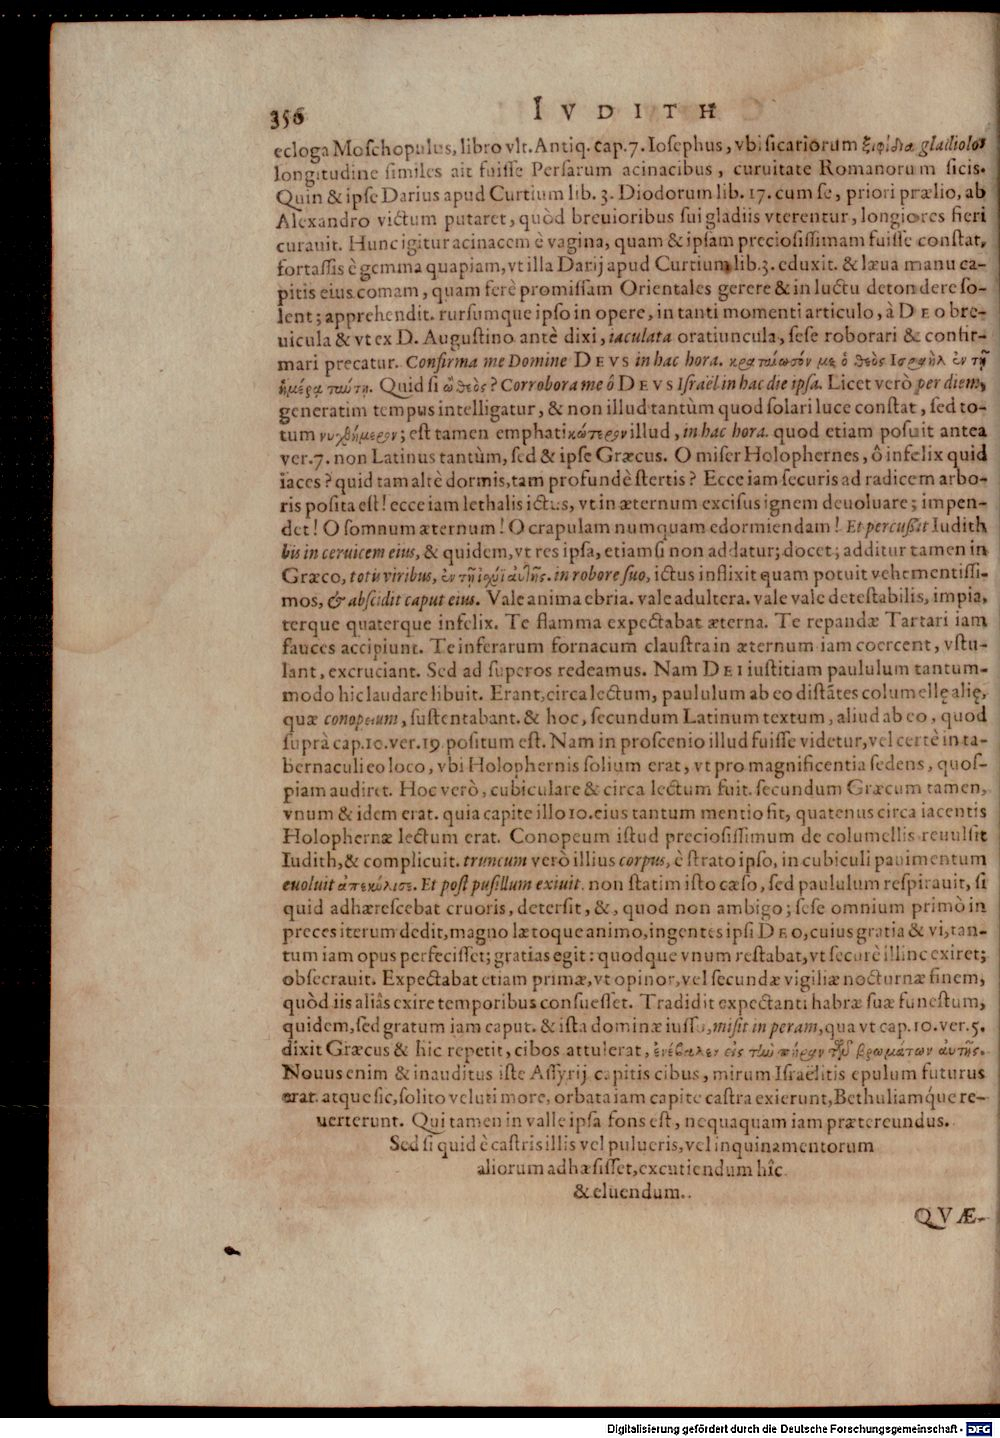 356
IVDITH
ecloga Moſchopulus, libro vlt. Antiq. cap. 7. Ioſephus, vbi ſicariorum ξιφίδια gladiolos
longitudine ſimiles ait fuiſſe Perſarum acinacibus, curuitate Romanorum ſicis.
Quin & ipſe Darius apud Curtium lib. 3. Diodorum lib. 17. cum ſe, priori prælio, ab
Alexandro victum putaret, quòd breuioribus ſui gladiis vterentur, longiores fieri
curauit. Hunc igitur acinacem è vagina, quam & ipſam precioſiſſimam fuiſſe conſtat,
fortaſſis è gemma quapiam, vt illa Darij apud Curtium lib. 3. eduxit. & læua manu ca-
pitis eius comam, quam ferè promiſſam Orientales gerere & in luctu detondere ſo-
lent; apprehendit. rurſumque ipſo in opere, in tanti momenti articulo, à DEO bre-
uicula & vt ex D. Auguſtino antè dixi, iaculata oratiuncula, ſeſe roborari & confir-
mari precatur. Confirma me Domine DEVS in hac hora. κραταίωσόν με ὁ θεὸς Ισραὴλ ἐν τῇ
ἡμέρᾳ ταύτῃ. Quid ſi ὦ θεὸς? Corrobora me ô DEVS Iſraël in hac die ipſa. Licet verò per diem,
generatim tempus intelligatur, & non illud tantùm quod ſolari luce conſtat, ſed to-
tum νυχθήμερον; eſt tamen emphatiκώτερον illud, in hac hora. quod etiam poſuit antea
ver. 7. non Latinus tantùm, ſed & ipſe Græcus. O miſer Holophernes, ô infelix quid
iaces? quid tam altè dormis, tam profundè ſtertis? Ecce iam ſecuris ad radicem arbo-
ris poſita eſt! ecce iam lethalis ictus, vt in æternum exciſus ignem deuoluare; impen-
det! O ſomnum æternum! O crapulam numquam edormiendam! Et percuſſit Iudith
bis in ceruicem eius, & quidem, vt res ipſa, etiamſi non addatur; docet; additur tamen in
Græco, totis viribus, ἐν τῇ ἰσχύϊ αὐτῆς. in robore ſuo, ictus inflixit quam potuit vehementiſſi-
mos, & abſcidit caput eius. Vale anima ebria. vale adultera. vale vale deteſtabilis, impia,
terque quaterque infelix. Te flamma expectabat æterna. Te repandæ Tartari iam
fauces accipiunt. Te inferarum fornacum clauſtra in æternum iam coercent, vſtu-
lant, excruciant. Sed ad ſuperos redeamus. Nam DEI iuſtitiam paululum tantum-
modo hic laudare libuit. Erant, circa lectum, paululum ab eo diſtātes columellę alię,
quæ conopeum, ſuſtentabant. & hoc, ſecundum Latinum textum, aliud ab eo, quod
ſuprà cap. 10. ver. 19. poſitum eſt. Nam in proſcenio illud fuiſſe videtur, vel certè in ta-
bernaculi eo loco, vbi Holophernis ſolium erat, vt pro magnificentia ſedens, quoſ-
piam audiret. Hoc verò, cubiculare & circa lectum fuit. ſecundum Græcum tamen,
vnum & idem erat. quia capite illo 10. eius tantum mentio fit, quatenus circa iacentis
Holophernæ lectum erat. Conopeum iſtud precioſiſſimum de columellis reuulſit
Iudith, & complicuit. truncum verò illius corpus, è ſtrato ipſo, in cubiculi pauimentum
euoluit ἀπεκύλισε. Et poſt puſillum exiuit. non ſtatim iſto cæſo, ſed paululum reſpirauit, ſi
quid adhæreſcebat cruoris, deterſit, &, quod non ambigo; ſeſe omnium primò in
preces iterum dedit, magno lætoque animo, ingentes ipſi DEO, cuius gratia & vi, tan-
tum iam opus perfeciſſet; gratias egit: quodque vnum reſtabat, vt ſecurè illinc exiret;
obſecrauit. Expectabat etiam primæ, vt opinor, vel ſecundæ vigiliæ nocturnæ finem,
quòd iis aliâs exire temporibus conſueſſet. Tradidit expectanti habræ ſuæ funeſtum,
quidem, ſed gratum iam caput. & iſta dominæ iuſſu, miſit in peram, qua vt cap. 10. ver. 5.
dixit Græcus & hic repetit, cibos attulerat, ἐνέβαλεν εἰς τὴν πήραν τῶν βρωμάτων αὐτῆς.
Nouus enim & inauditus iſte Aſſyrij capitis cibus, mirum Iſraëlitis epulum futurus
erat. atque ſic, ſolito veluti more, orbata iam capite caſtra exierunt, Bethuliamq́ue re-
uerterunt. Qui tamen in valle ipſa fons eſt, nequaquam iam prætereundus.
Sed ſi quid è caſtris illis vel pulueris, vel inquinamentorum
aliorum adhæſiſſet, excutiendum hîc
& eluendum.
QVÆ-
Digitalisierung gefördert durch die Deutsche Forschungsgemeinschaft - DFG